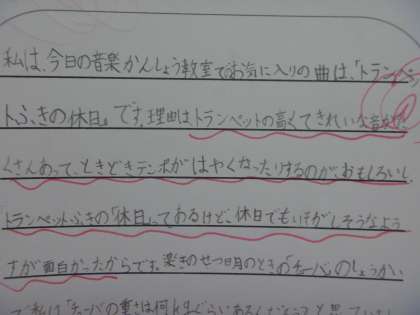 私は、今日の音楽かんしょう教室でお気に入りの曲は、「トランペッ
トふきの休日」です。理由はトランペットの高くてきれいな音がた
くさんあって、ときどきテンポがはやくなったりするのが、おもしろいし、
トランペットふきの「休日」ってあるけど、休日でもいそがしそうなよう
すが面白かったからです。楽きのせつ明のときの「チューバ」のしょうかい
で私は「チューバの重さは何kgぐらいあるんだろう」と思っていた